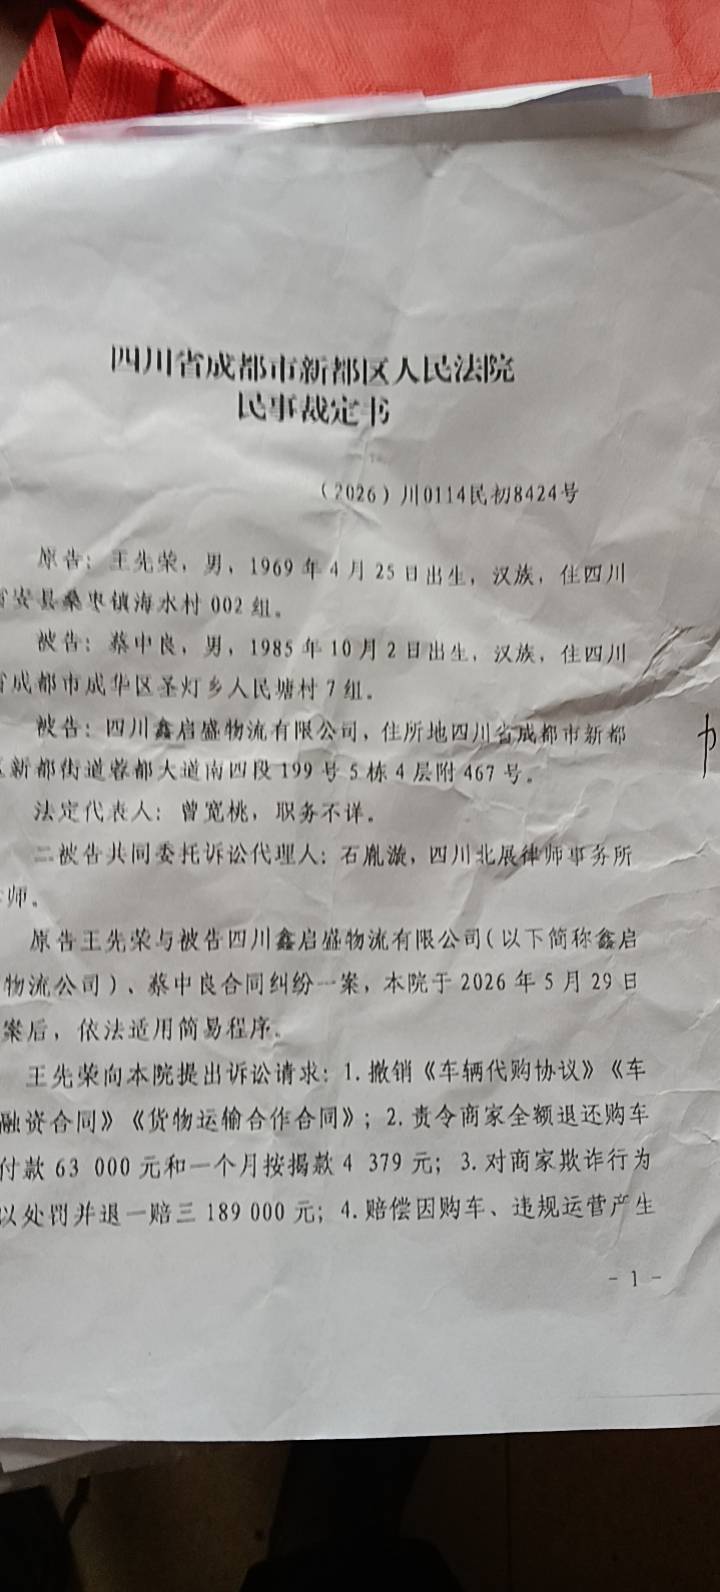 四川省成都市新都区人民法院
民事裁定书
（2026）川0114民初8424号
原告：王先荣，男，1969年4月25日出生，汉族，住四川
省安县桑枣镇海水村002组。
被告：蔡中良，男，1985年10月2日出生，汉族，住四川
省成都市成华区圣灯乡人民塘村7组。
被告：四川鑫启盛物流有限公司，住所地四川省成都市新都
区新都街道蓉都大道南四段199号5栋4层附467号。
法定代表人：曾宽桃，职务不详。
二被告共同委托诉讼代理人：石胤漩，四川北展律师事务所
律师。
原告王先荣与被告四川鑫启盛物流有限公司（以下简称鑫启
物流公司）、蔡中良合同纠纷一案，本院于2026年5月29日
案后，依法适用简易程序。
王先荣向本院提出诉讼请求：1.撤销《车辆代购协议》《车
融资合同》《货物运输合作合同》；2.责令商家全额退还购车
付款63 000元和一个月按揭款4 379元；3.对商家欺诈行为
以处罚并退一赔三189 000元；4.赔偿因购车、违规运营产生
- 1 -